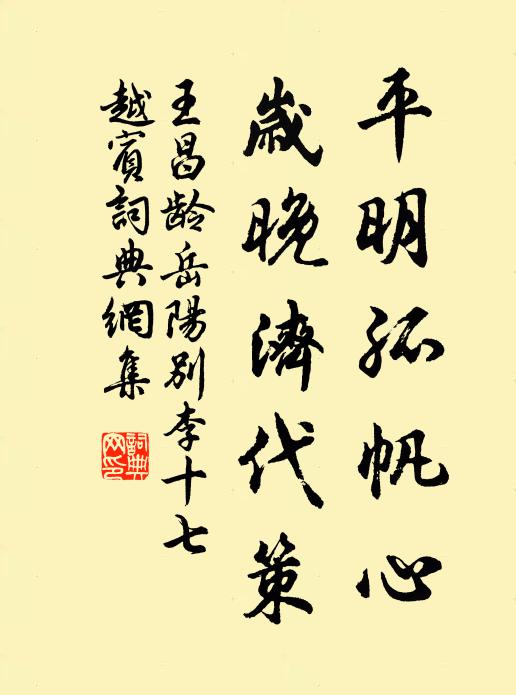 平明孤帆心
歳晚濟代策
王昌齡岳陽別李十七
越賓詞典網集
詞典
网印